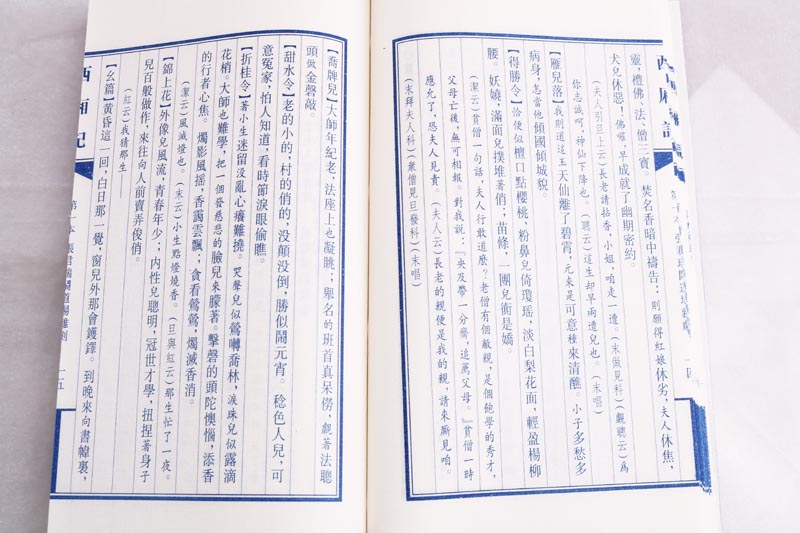 靈，禮佛、法、僧三寳。焚名香暗中禱告：則願得紅娘休劣，夫人休焦，
犬兒休惡！佛囉，早成就了幽期密約。
（夫人引旦上云）長老請拈香，小姐，咱走一遭。（末做見科）（覷聰云）爲
你志誠呵，神仙下降也。（聰云）這生却早兩遭兒也。（末唱）
【雁兒落】我則道這玉天仙離了碧霄，元來是可意種來清醮。小子多愁多
病身，怎當他傾國傾城貌。
【得勝令】恰便似檀口點櫻桃，粉鼻兒倚瓊瑤，淡白梨花面，輕盈楊柳
腰。妖嬈，滿面兒撲堆著俏；苗條，一團兒衠是嬌。
（潔云）貧僧一句話，夫人行敢道麽？老僧有個敝親，是個飽學的秀才，
父母亡後，無可相報。對我說：『央及帶一分齋，追薦父母。』貧僧一時
應允了，恐夫人見責。（夫人云）長老的親便是我的親，請來厮見咱。
（末拜夫人科）（衆僧見旦發科）（末唱）
【喬牌兒】大師年紀老，法座上也凝眺；舉名的班首真呆僗，覷著法聰
頭做金磬敲。
【甜水令】老的小的，村的俏的，没顛没倒，勝似鬧元宵。稔色人兒，可
意冤家，怕人知道，看時節淚眼偷瞧。
【折桂令】著小生迷留没亂心癢難撓。哭聲兒似鶯囀喬林，淚珠兒似露滴
花梢。大師也難學，把一個發慈悲的臉兒來朦著。擊磬的頭陀懊惱，添香
的行者心焦。燭影風摇，香靄雲飄；貪看鶯鶯，燭滅香消。
（潔云）風滅燈也。（末云）小生點燈燒香。（旦與紅云）那生忙了一夜。
【錦上花】外像兒風流，青春年少；内性兒聰明，冠世才學，扭捏著身子
兒百般做作，來往向人前賣弄俊俏。
（紅云）我猜那生——
【幺篇】黄昏這一回，白日那一覺，窗兒外那會鑊鐸。到晚來向書幃裏，
西廂記
第一本
一五